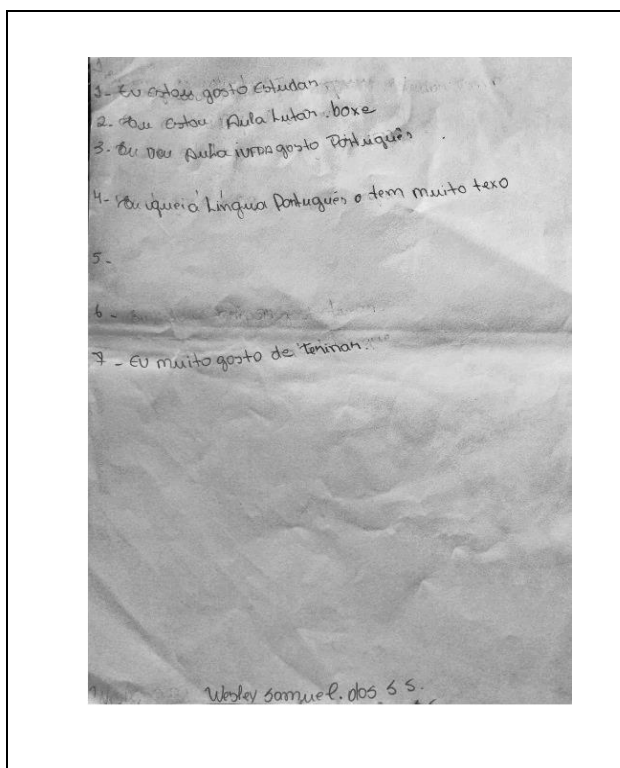 1- Eu estou gosto Estudan
2. Eu Estou Aula Lutar.boxe
3. Eu Dou Aulha gosto Português.
4- Língua Português o tem muito texo
5-
6-
7- EU muito gosto de teninan.
Wesley samuel.dos S S.